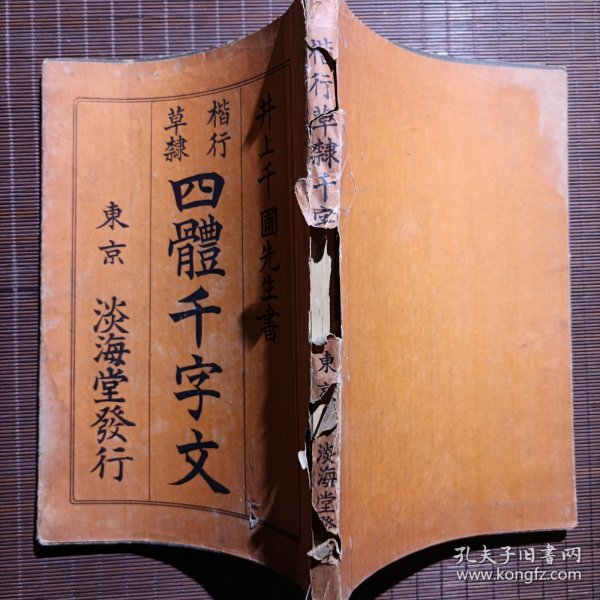 井上千圃先生書
楷行
草隸
四體千字文
東京
淡海堂發行
楷行草隸千字
東京
淡海堂發
孔夫子旧书网
www.kongfz.com